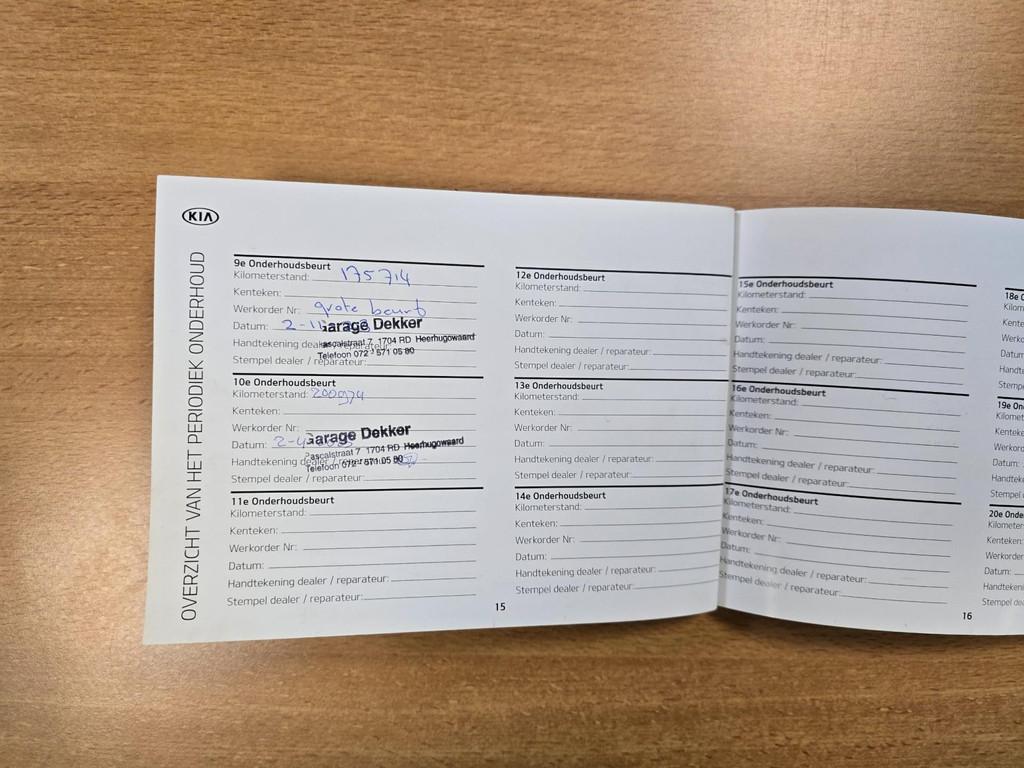 KIA
OVERZICHT VAN HET PERIODIEK ONDERHOUD
9e Onderhoudsbeurt
Kilometerstand: 175714
Kenteken:
Werkorder Nr: grote beurt
Datum: 2-11
Garage Dekker
Handtekening dealer / reparateur:
Pascalstraat 7 1704 RD Heerhugowaard
Telefoon 072 - 571 05 80
Stempel dealer / reparateur:
10e Onderhoudsbeurt
Kilometerstand: 200974
Kenteken:
Werkorder Nr:
Garage Dekker
Datum: 2-4
Pascalstraat 7 1704 RD Heerhugowaard
Handtekening dealer / reparateur:
Telefoon 072 - 571 05 80
Stempel dealer / reparateur:
11e Onderhoudsbeurt
Kilometerstand:
Kenteken:
Werkorder Nr:
Datum:
Handtekening dealer / reparateur:
Stempel dealer / reparateur:
12e Onderhoudsbeurt
Kilometerstand:
Kenteken:
Werkorder Nr:
Datum:
Handtekening dealer / reparateur:
Stempel dealer / reparateur:
13e Onderhoudsbeurt
Kilometerstand:
Kenteken:
Werkorder Nr:
Datum:
Handtekening dealer / reparateur:
Stempel dealer / reparateur:
14e Onderhoudsbeurt
Kilometerstand:
Kenteken:
Werkorder Nr:
Datum:
Handtekening dealer / reparateur:
Stempel dealer / reparateur:
15
15e Onderhoudsbeurt
Kilometerstand:
Kenteken:
Werkorder Nr:
Datum:
Handtekening dealer / reparateur:
Stempel dealer / reparateur:
16e Onderhoudsbeurt
Kilometerstand:
Kenteken:
Werkorder Nr:
Datum:
Handtekening dealer / reparateur:
Stempel dealer / reparateur:
17e Onderhoudsbeurt
Kilometerstand:
Kenteken:
Werkorder Nr:
Datum:
Handtekening dealer / reparateur:
Stempel dealer / reparateur:
16
18e O
Kilom
Kente
Werko
Datum
Handt
Stempe
19e On
Kilomet
Kenteke
Werkor
Datum:
Handte
Stempel
20e Onde
Kilometer
Kenteken:
Werkorder
Datum:
Handteken
Stempel de